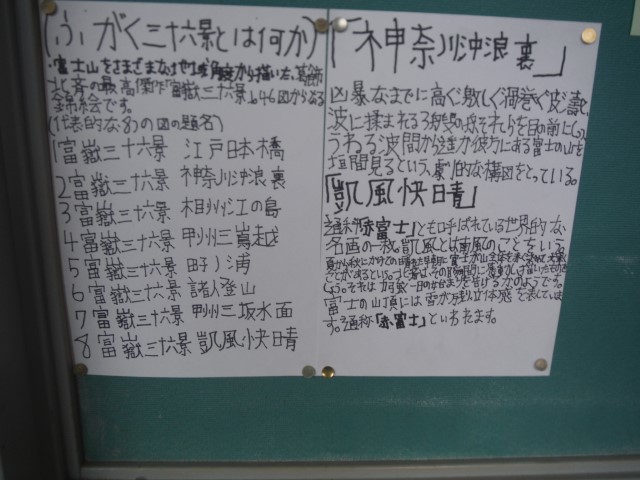 (ふがく三十六景とは何か)
富士山をさまざまな地域、角度から描いた、葛飾
北斎の最高傑作「富嶽三十六景」46図からなる
錦絵です。
(代表的な8つの図の題名)
1富嶽三十六景 江戸日本橋
2富嶽三十六景 神奈川沖浪裏
3富嶽三十六景 相州江の島
4富嶽三十六景 甲州三嶌越
5富嶽三十六景 田子ノ浦
6富嶽三十六景 諸人登山
7富嶽三十六景 甲州三坂水面
8富嶽三十六景 凱風快晴
「神奈川沖浪裏」
凶暴なまでに高く激しく渦巻く波濤と、
波に揉まれる3艘の舟それらを目の前にし、
うねる波間から遥か彼方にある富士の山を
垣間見るという、劇的な構図をとっている。
「凱風快晴」
通称「赤富士」とも呼ばれている世界的な
名画の一枚。凱風とは南風のことをいう。
富士の山頂には雪が
す。通称「赤富士」といわれます。